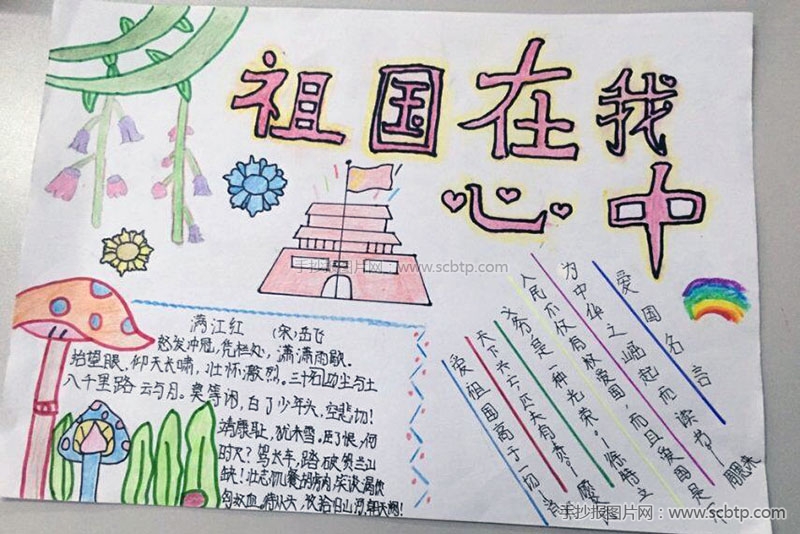 祖国在我
心中
手抄报图片网：www.scbtp.com
满江红 （宋）岳飞
怒发冲冠，凭栏处，潇潇雨歇。
抬望眼。仰天长啸，壮怀激烈。三十功尘与土
八千里路云与月。莫等闲，白了少年头，空悲切！
靖康耻，犹未雪。臣子恨，何
时灭？驾长车，踏破贺兰山
缺！壮志饥餐胡虏肉，笑谈渴饮
匈奴血。待从头，收拾旧山河，朝天阙！
爱国名言
为中华之崛起而读书——周恩来
人民不仅有权爱国，而且爱国是
义务，是一种光荣。——徐特立
天下兴亡匹夫有责——顾
爱祖国高于一切！
手抄报图片网：www.scbtp.com